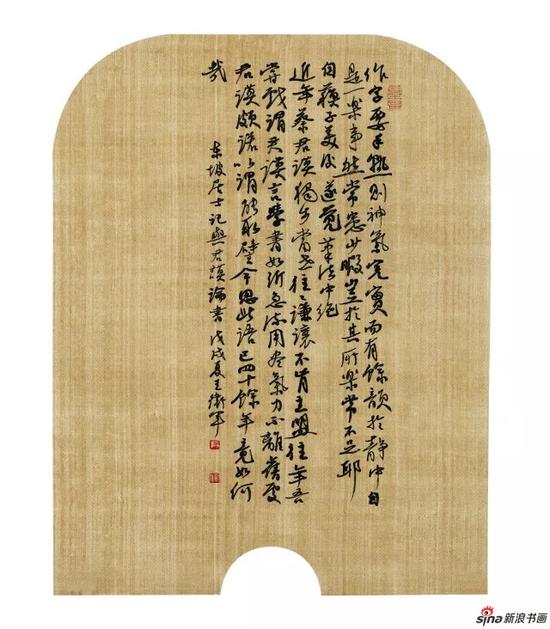 作字要手熟則神氣完實而有餘韻於静中自
是一樂事然常患少暇豈於其所樂常不足耶
自蘇子美死遂覺筆法中絶
近年蔡君謨獨步當世往〻謙讓不肯主盟往年吾
嘗戲謂君謨言學書如泝急流用盡氣力不離舊處
君謨頗諾以謂能取譬今思此語已四十餘年竟如何
哉
东坡居士记與君謨論書 戊戌夏王衛軍
sina新浪书画